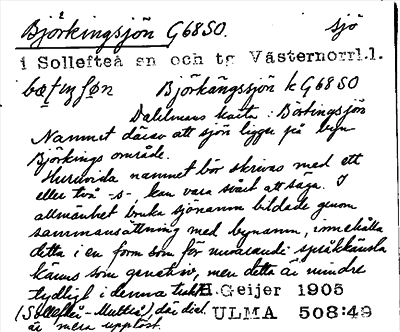 Björkingsjön G68SO. sjö
i Sollefteå sn och tg Västernorrl.l.
Björkängssjön k G68SO
Dahlmans karta: Börtingsjön
Namnet därav att sjön ligger på byn
Björkings område.
Huruvida namnet bör skrivas med ett
eller två -s- kan vara svårt att säga. I
allmänhet bruka sjönamn bildade genom
sammansättning med bynamn, innehålla
detta i en form som för nuvarande språkkänsla
känns som genetiv, men detta är mindre
tydligt i denna trakt
H.Geijer 1905
(Sollefteå-Multrå), där dial.
ULMA 508:49
är mera upplöst.